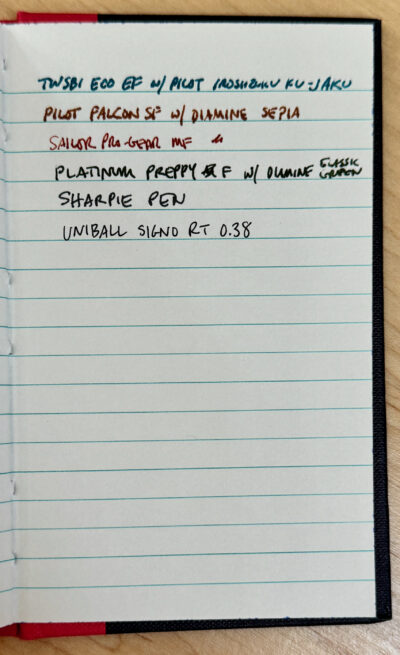 TWSBI ECO EF w/ PILOT IROSHIZUKU KU-JAKU
PILOT FALCON SF w/ DIAMINE SEPIA
SAILOR PRO-GEAR MF
PLATINUM PREPPY F w/ DIAMINE CLASSIC GREEN
SHARPIE PEN
UNIBALL SIGNO RT 0.38